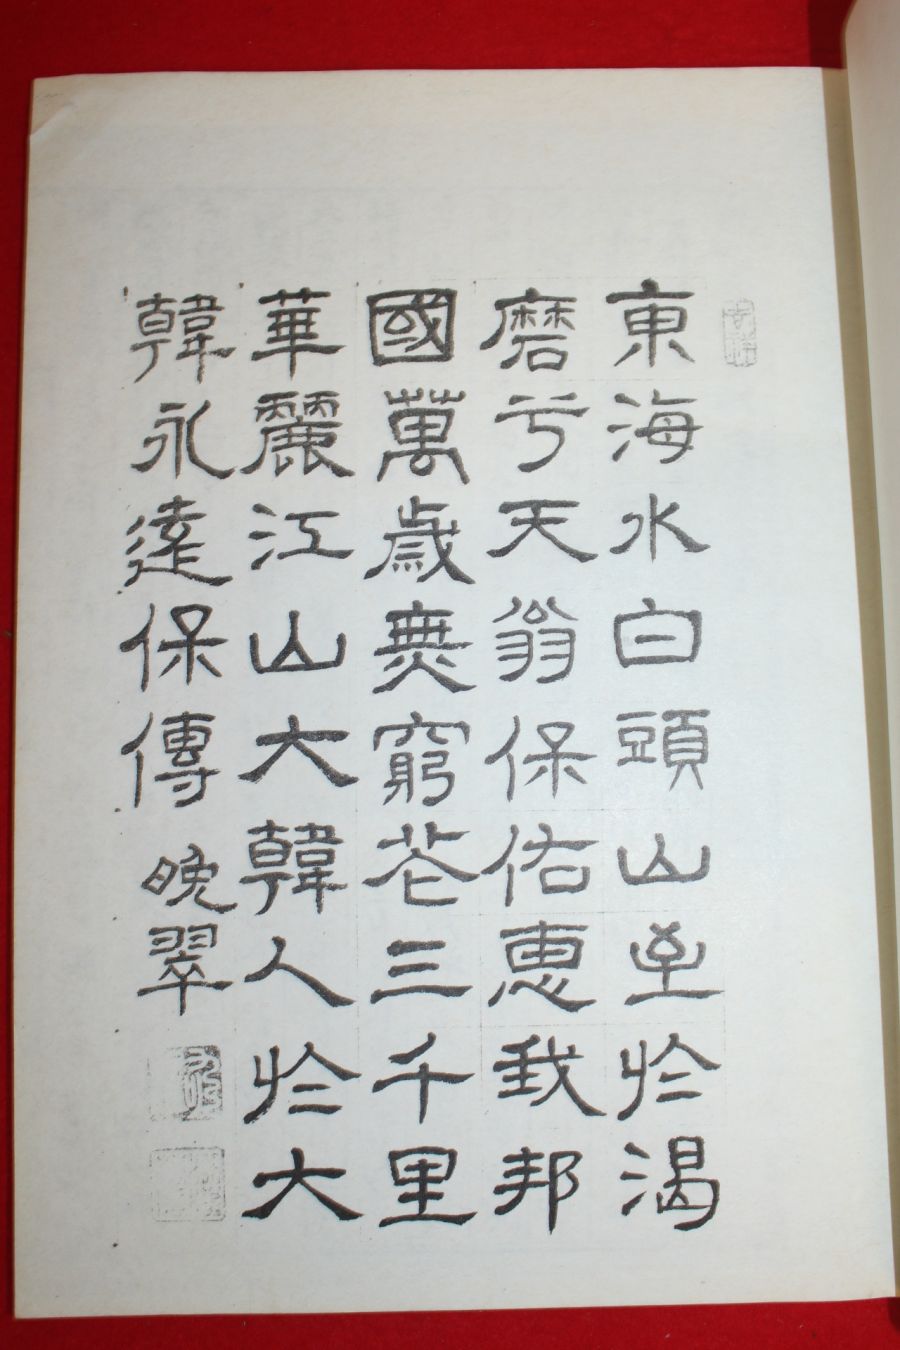 東海水白頭山至於渴
磨兮天翁保佑惠我邦
國萬歲無窮花三千里
華麗江山大韓人於大
韓永遠保傳 晚翠